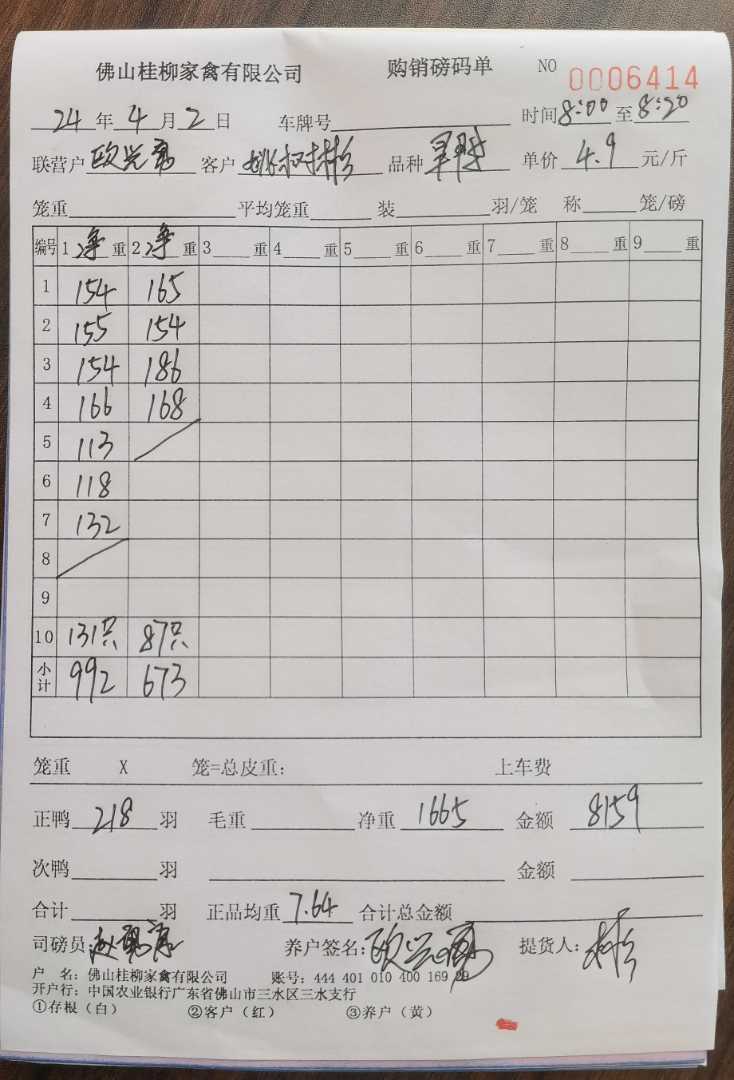 佛山桂柳家禽有限公司 购销磅码单 NO 0006414
24年4月2日 车牌号 时间8:00至8:20
联营户 欧兴 客户 姚树彬 品种 单价 4.9 元/斤
笼重 平均笼重 装 羽/笼 称 笼/磅
编号 1净重 2净重 3 重 4 重 5 重 6 重 7 重 8 重 9 重
1 154 165
2 155 154
3 154 186
4 166 168
5 113
6 118
7 132
8
9
10 131只 87只
小计 992 673
笼重 X 笼=总皮重: 上车费
正鸭 218 羽 毛重 净重 1665 金额 8159
次鸭 羽 金额
合计 羽 正品均重 7.64 合计总金额
司磅员: 养户签名: 欧兴 提货人: 彬
户 名: 佛山桂柳家禽有限公司 账号: 444 401 010 400 169 99
开户行: 中国农业银行广东省佛山市三水区三水支行
①存根(白) ②客户(红) ③养户(黄)